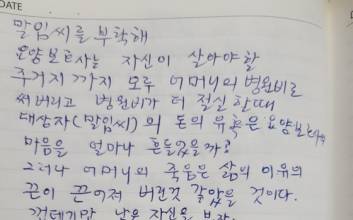 DATE
말임씨를 부탁해
요양보호사는 자신이 살아야할
주거지 까지 모두 어머니의 병원비로
써버리고 병원비가 더 절실한때
대상자(말임씨)의 돈의 유혹은 요양보호사
마음을 얼마나 흔들었을까?
그러나 어머니의 죽음은 삶의 이유의
끈이 끈어져 버린것 같았을 것이다.
껍데기만 남은 자신을